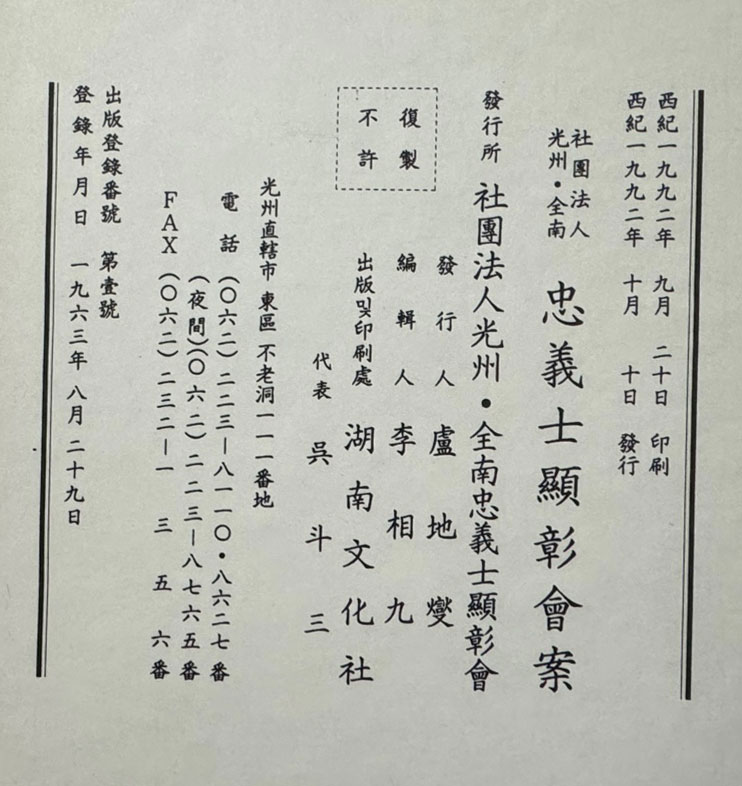 西紀一九九二年 九月 二十日 印刷
西紀一九九二年 十月 十日 發行
社團法人
光州・全南
忠義士顯彰會案
發行所 社團法人光州・全南忠義士顯彰會
發行人 盧地燮
編輯人 李相九
復製
不許
出版및印刷處 湖南文化社
代表 吳斗三
光州直轄市 東區 不老洞一一一番地
電話 (〇六二)二二三―八一一〇・八六二七番
(夜間)(〇六二)二二三―八七六五番
FAX (〇六二)二三二―一三五六番
出版登錄番號 第壹號
登錄年月日 一九六三年 八月 二十九日